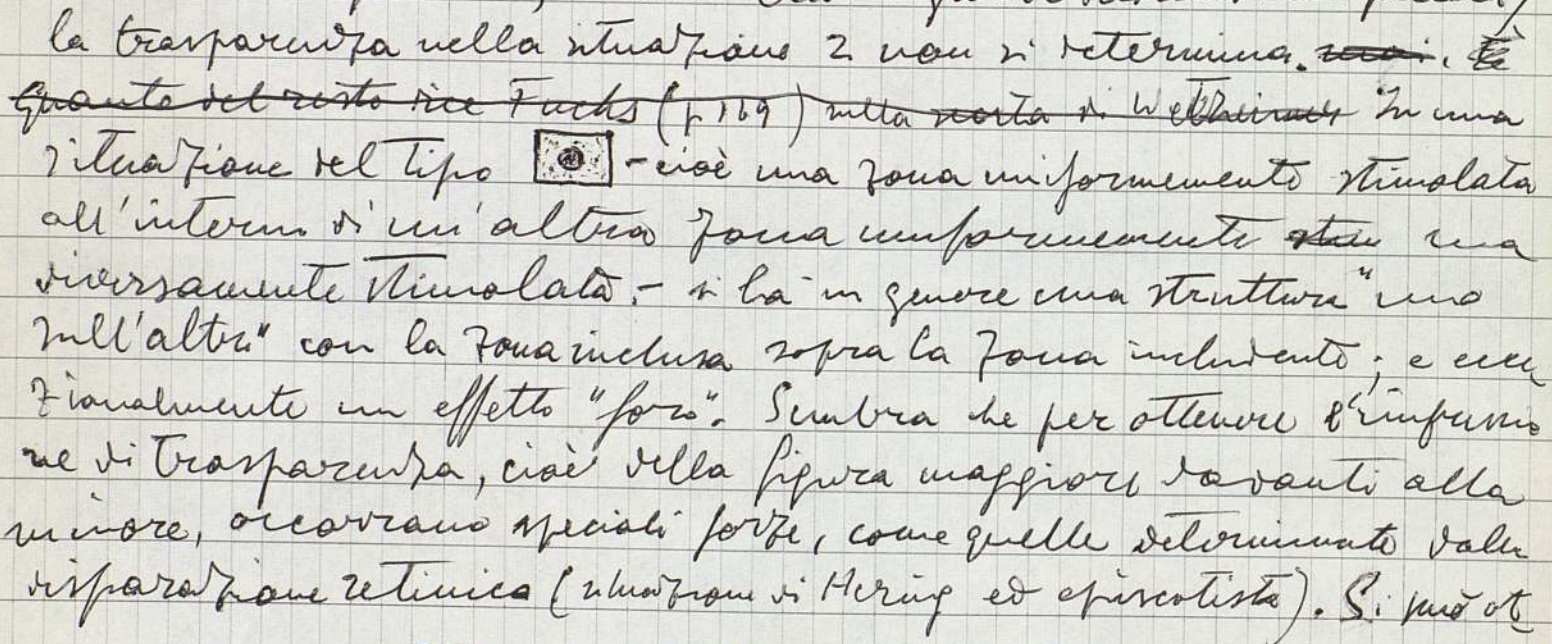 la trasparenza nella situazione 2 non si determina. mai. E
quanto del resto dice Fuchs (p 169) sulla scorta di Wertheimer In una
situazione del tipo - cioè una zona uniformemente stimolata
all'interno di un'altra zona uniformemente stim ma
diversamente stimolata - si ha in genere una struttura "uno
sull'altro" con la zona inclusa sopra la zona includente; e ecce
zionalmente un effetto "foro". Sembra che per ottenere l'impressio
ne di trasparenza, cioè della figura maggiore davanti alla
minore, occorrano speciali forze, come quelle determinate dalla
disparazione retinica (situazione di Hering ed episcotista). Si può ot